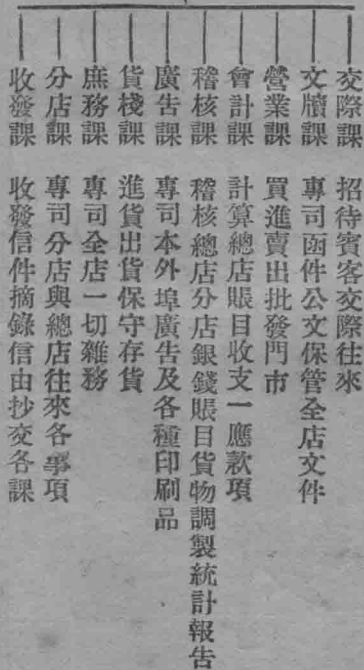 交際課 招待賓客交際往來
文牘課 專司函件公文保管全店文件
營業課 買進賣出批發門市
會計課 計算總店賬目收支一應款項
稽核課 稽核總店分店銀錢賬目貨物調製統計報告
廣告課 專司本外埠廣告及各種印刷品
貨棧課 進貨出貨保守存貨
庶務課 專司全店一切雜務
分店課 專司分店與總店往來各事項
收發課 收發信件摘錄信由抄交各課